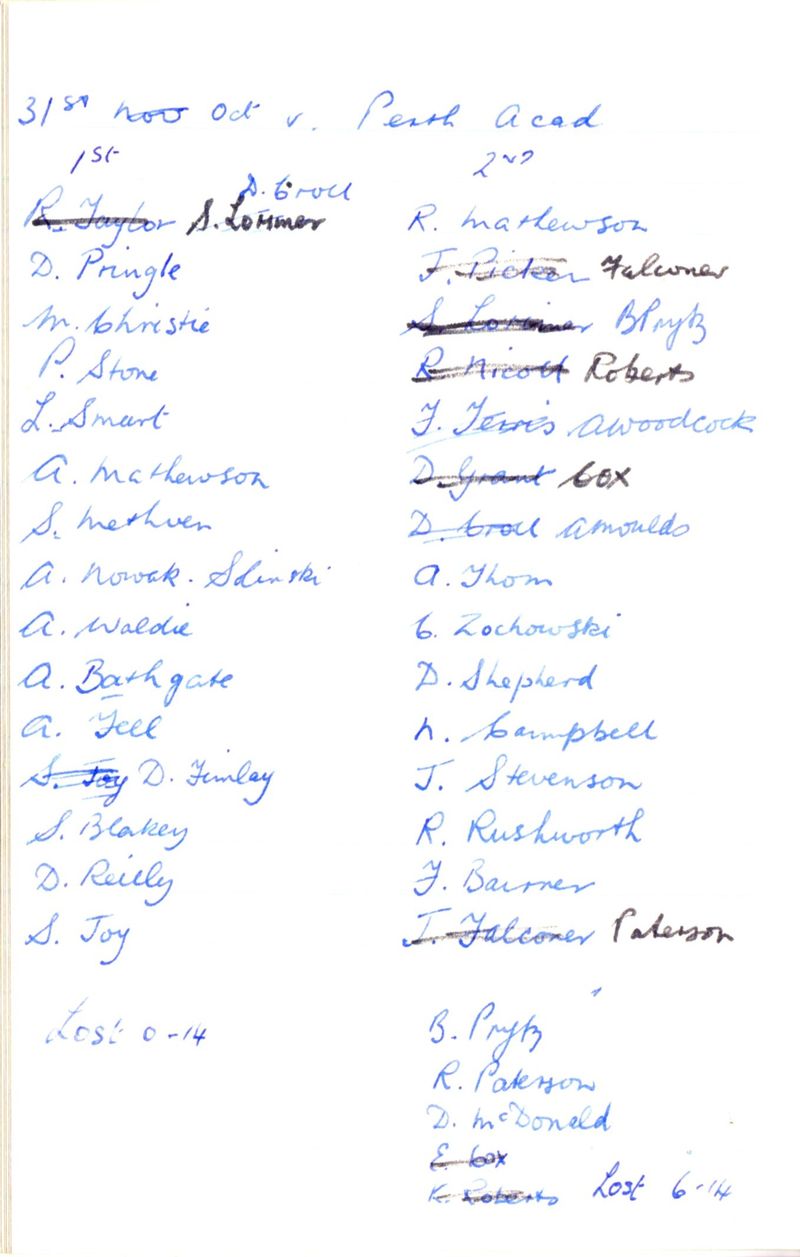 31st Nov Oct v. Perth Acad
1st
D. Croll
R. Taylor S. Lorimer
D. Pringle
M. Christie
P. Stone
L. Smart
A. Mathewson
S. Methven
A. Nowak-Slinski
A. Waldie
A. Bathgate
A. Fell
S. Joy D. Finlay
S. Blakey
D. Reilly
S. Joy
Lost 0-14
2nd
R. Mathewson
J. Falconer
S Lorimer B Prytz
R Nicoll Roberts
F. Ferris A Woodcock
D. Grant Cox
D. Croll A Moulds
A. Thom
C. Zochowski
D. Shepherd
N. Campbell
J. Stevenson
R. Rushworth
F. Barrer
J. Falconer Paterson
B. Prytz
R. Paterson
D. McDonald
E. Cox
K. Roberts Lost 6-14